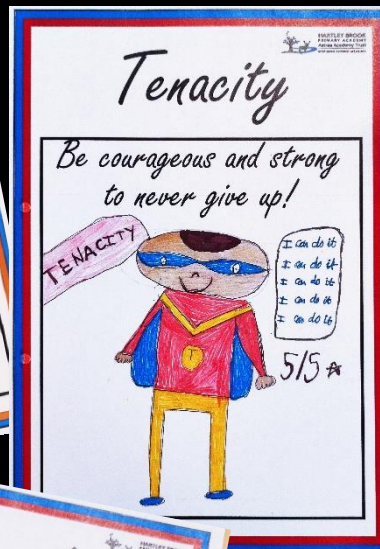 HARTLEY BROOK
PRIMARY ACADEMY
Astrea Academy Trust
Tenacity
Be courageous and strong
to never give up!
TENACITY
I can do it
I can do it
I can do it
I can do it
I can do it
5/5
T